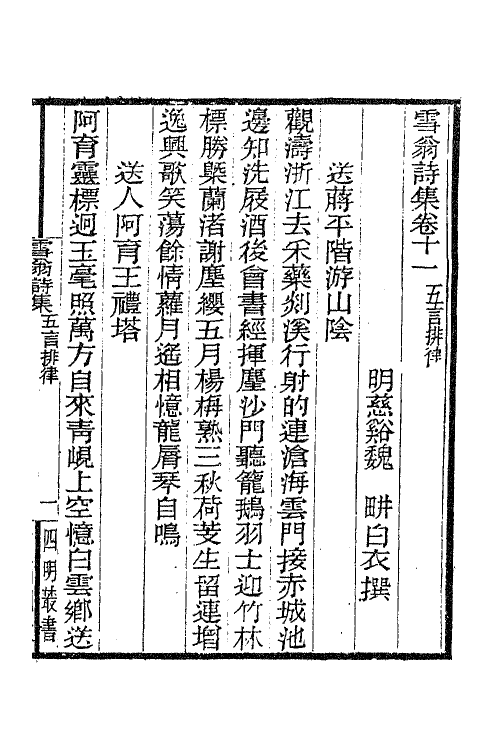 雪翁詩集卷十一 五言排律
明慈谿魏　畊白衣撰
送蔣平階游山陰
觀濤浙江去禾藥剡溪行射的連滄海雲門接赤城池
邊知洗屐酒後會書經揮麈沙門聽籠鵝羽士迎竹林
標勝槩蘭渚謝塵纓五月楊梅熟三秋荷芰生留連增
逸興歌笑蕩餘情蘿月遙相憶龍脣琴自鳴
送人阿育王禮塔
阿育靈標迥玉毫照萬方自來青峴上空憶白雲鄉送
雪翁詩集 五言排律　一　四明叢書